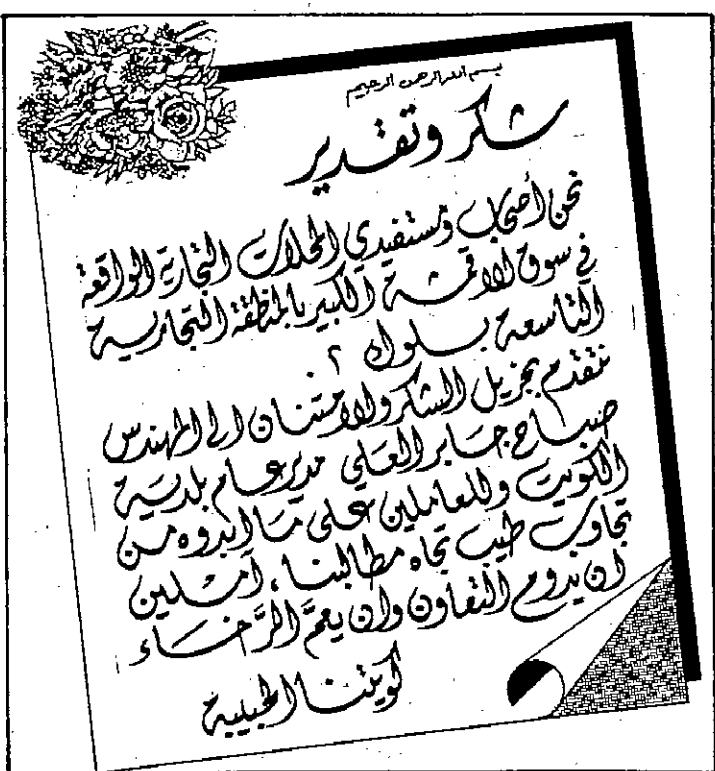 بسم الله الرحمن الرحيم
شكر وتقدير
نحن أصحاب ومستفيدي المحلات التجارية الواقعة
في سوق الاقمشة الكبير بالمنطقة التجارية
التاسعة بلوك ٢
نتقدم بجزيل الشكر والامتنان الى المهندس
صباح جابر العلي مدير عام بلدية
الكويت وللعاملين على ما ابدوه من
تجاوب طيب تجاه مطالبنا، آملين
ان يدوم التعاون وان يعمَّ الرَّخاء
كويتنا الحبيبة